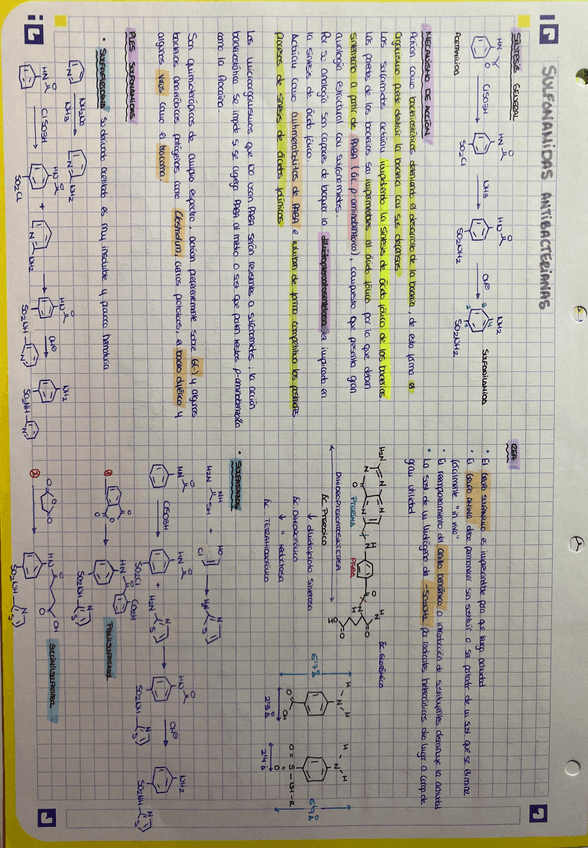 SULFONAMIDAS ANTIBACTERIANAS
SÍNTESIS GENERAL
ACETANILIDA
ClSO3H
NH3
SULFANILAMIDA
MECANISMO DE ACCIÓN
Actúan como bacteriostáticos deteniendo el desarrollo de la bacteria, de esta forma el
organismo puede destruir la bacteria con sus defensas.
Las sulfamidas actúan impidiendo la síntesis de ácido fólico de las bacterias
Las paredes de las bacterias son impermeables al ácido fólico por lo que deben
sintetizarlo a partir de PABA (ác p-aminobenzoico), compuesto que presenta gran
analogía estructural con sulfonamidas.
Por su analogía son capaces de bloquear la dihidropteroatosintetasa implicada en
la síntesis de ácido fólico.
Actúan como antimetabolitos de PABA e inhiben de forma competitiva los
procesos de síntesis de ácidos fólicos.
Los microorganismos que no usan PABA serán resistentes a sulfamidas, la acción
bacteriostática se impide si se agrega PABA al medio o sus que pueda p-aminobenzoico
como la procaína
Son quimioterápicos de amplio espectro, actúan preferentemente sobre G(+) y algunos
bacilos anaeróbicos patógenos como Clostridium, ciertos parásitos, el bacilo diftérico y
algunos virus como el tracoma.
PLES SULFONAMIDAS
• SULFAPIRIDINA: su derivado acetilado es muy insoluble y provoca hematuria
ClSO3H
NH3
SO2Cl
SO2NH
REA
• El GRUPO SULFAMILO es imprescindible para que haya actividad
• El GRUPO AMINO debe permanecer sin sustituir o ser portador de un sust. que se elimine
fácilmente "in vivo"
• El reemplazamiento del anillo bencénico o introducción de sustituyentes disminuye la actividad
• La sust de un hidrógeno de -SO2NH2 por radicales heterocíclicos da lugar a comp de
gran utilidad
PTERINA
PABA
ÁC GLUTÁMICO
DIHIDROPTEROATOSINTETASA
ÁC PTEROICO
↓ dihidrofolato sintetasa
ÁC DIHIDROFÓLICO
↓ " reductasa
ÁC TETRAHIDROFÓLICO
6'7 Å
2'3 Å
6'9 Å
2'4 Å
• SULFATIAZOL
ClSO3H
SO2Cl
SO2NH
FTALILSULFATIAZOL
SUCCINILSULFATIAZOL